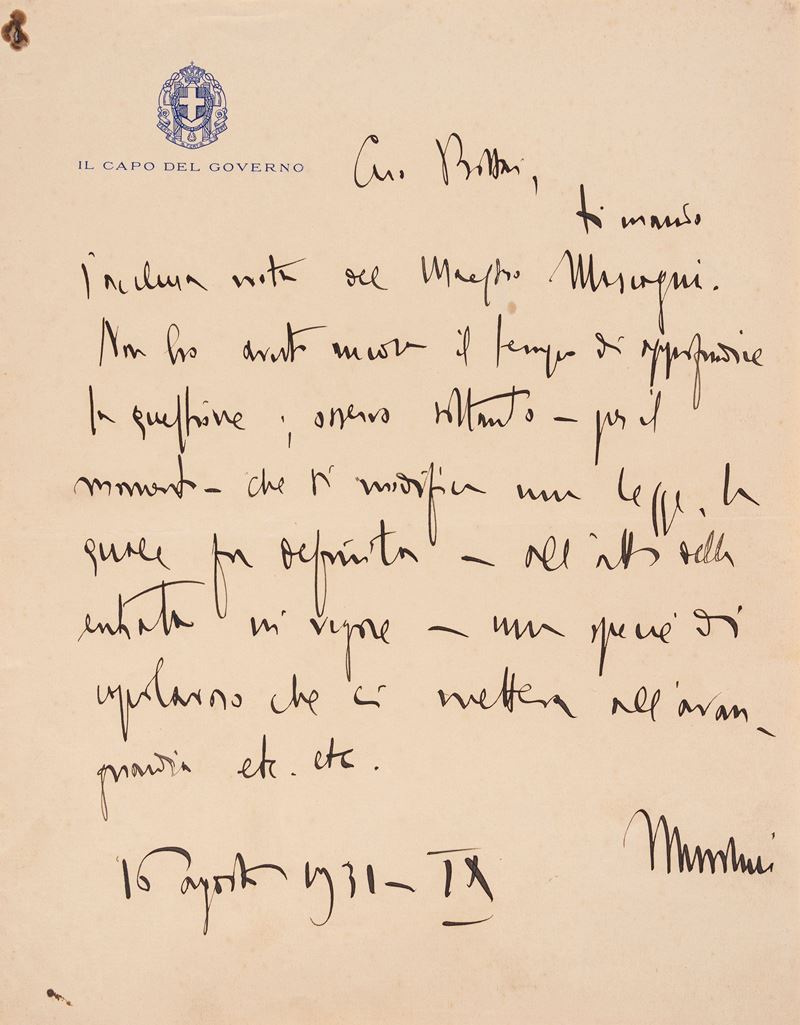 IL CAPO DEL GOVERNO
Caro Bottai,
ti mando
l'acclusa nota del Maestro Mascagni.
Non ho avuto ancora il tempo di approfondire
la questione; osservo soltanto – per il
momento – che si modifica una legge, la
quale fu definita – all'atto della
entrata in vigore – una specie di
capolavoro che ci metteva all'avan-
guardia etc. etc.
Mussolini
16 agosto 1931 – IX